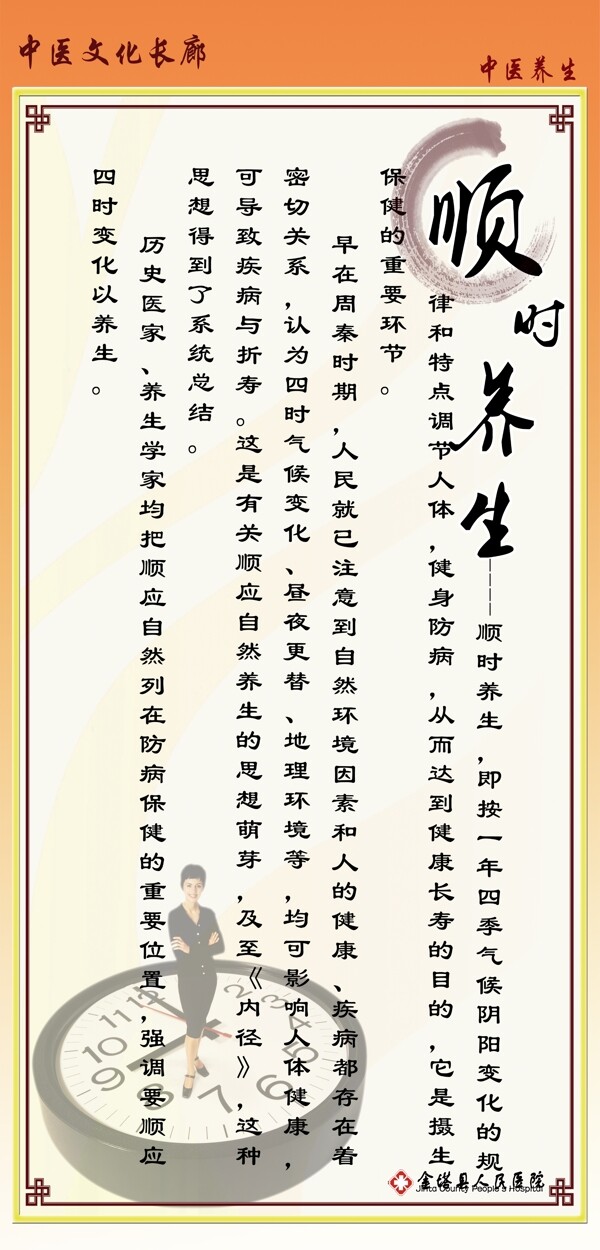 中医文化长廊
中医养生
顺时养生
----顺时养生，即按一年四季气候阴阳变化的规
律和特点调节人体，健身防病，从而达到健康长寿的目的，它是摄生
保健的重要环节。
早在周秦时期，人民就已注意到自然环境因素和人的健康、疾病都存在着
密切关系，认为四时气候变化、昼夜更替、地理环境等，均可影响人体健康，
可导致疾病与折寿。这是有关顺应自然养生的思想萌芽，及至《内径》，这种
思想得到了系统总结。
历史医家、养生学家均把顺应自然列在防病保健的重要位置，强调要顺应
四时变化以养生。
12
1
2
3
4
5
6
7
8
9
10
11
金塔县人民医院
Jinta County People's Hospital